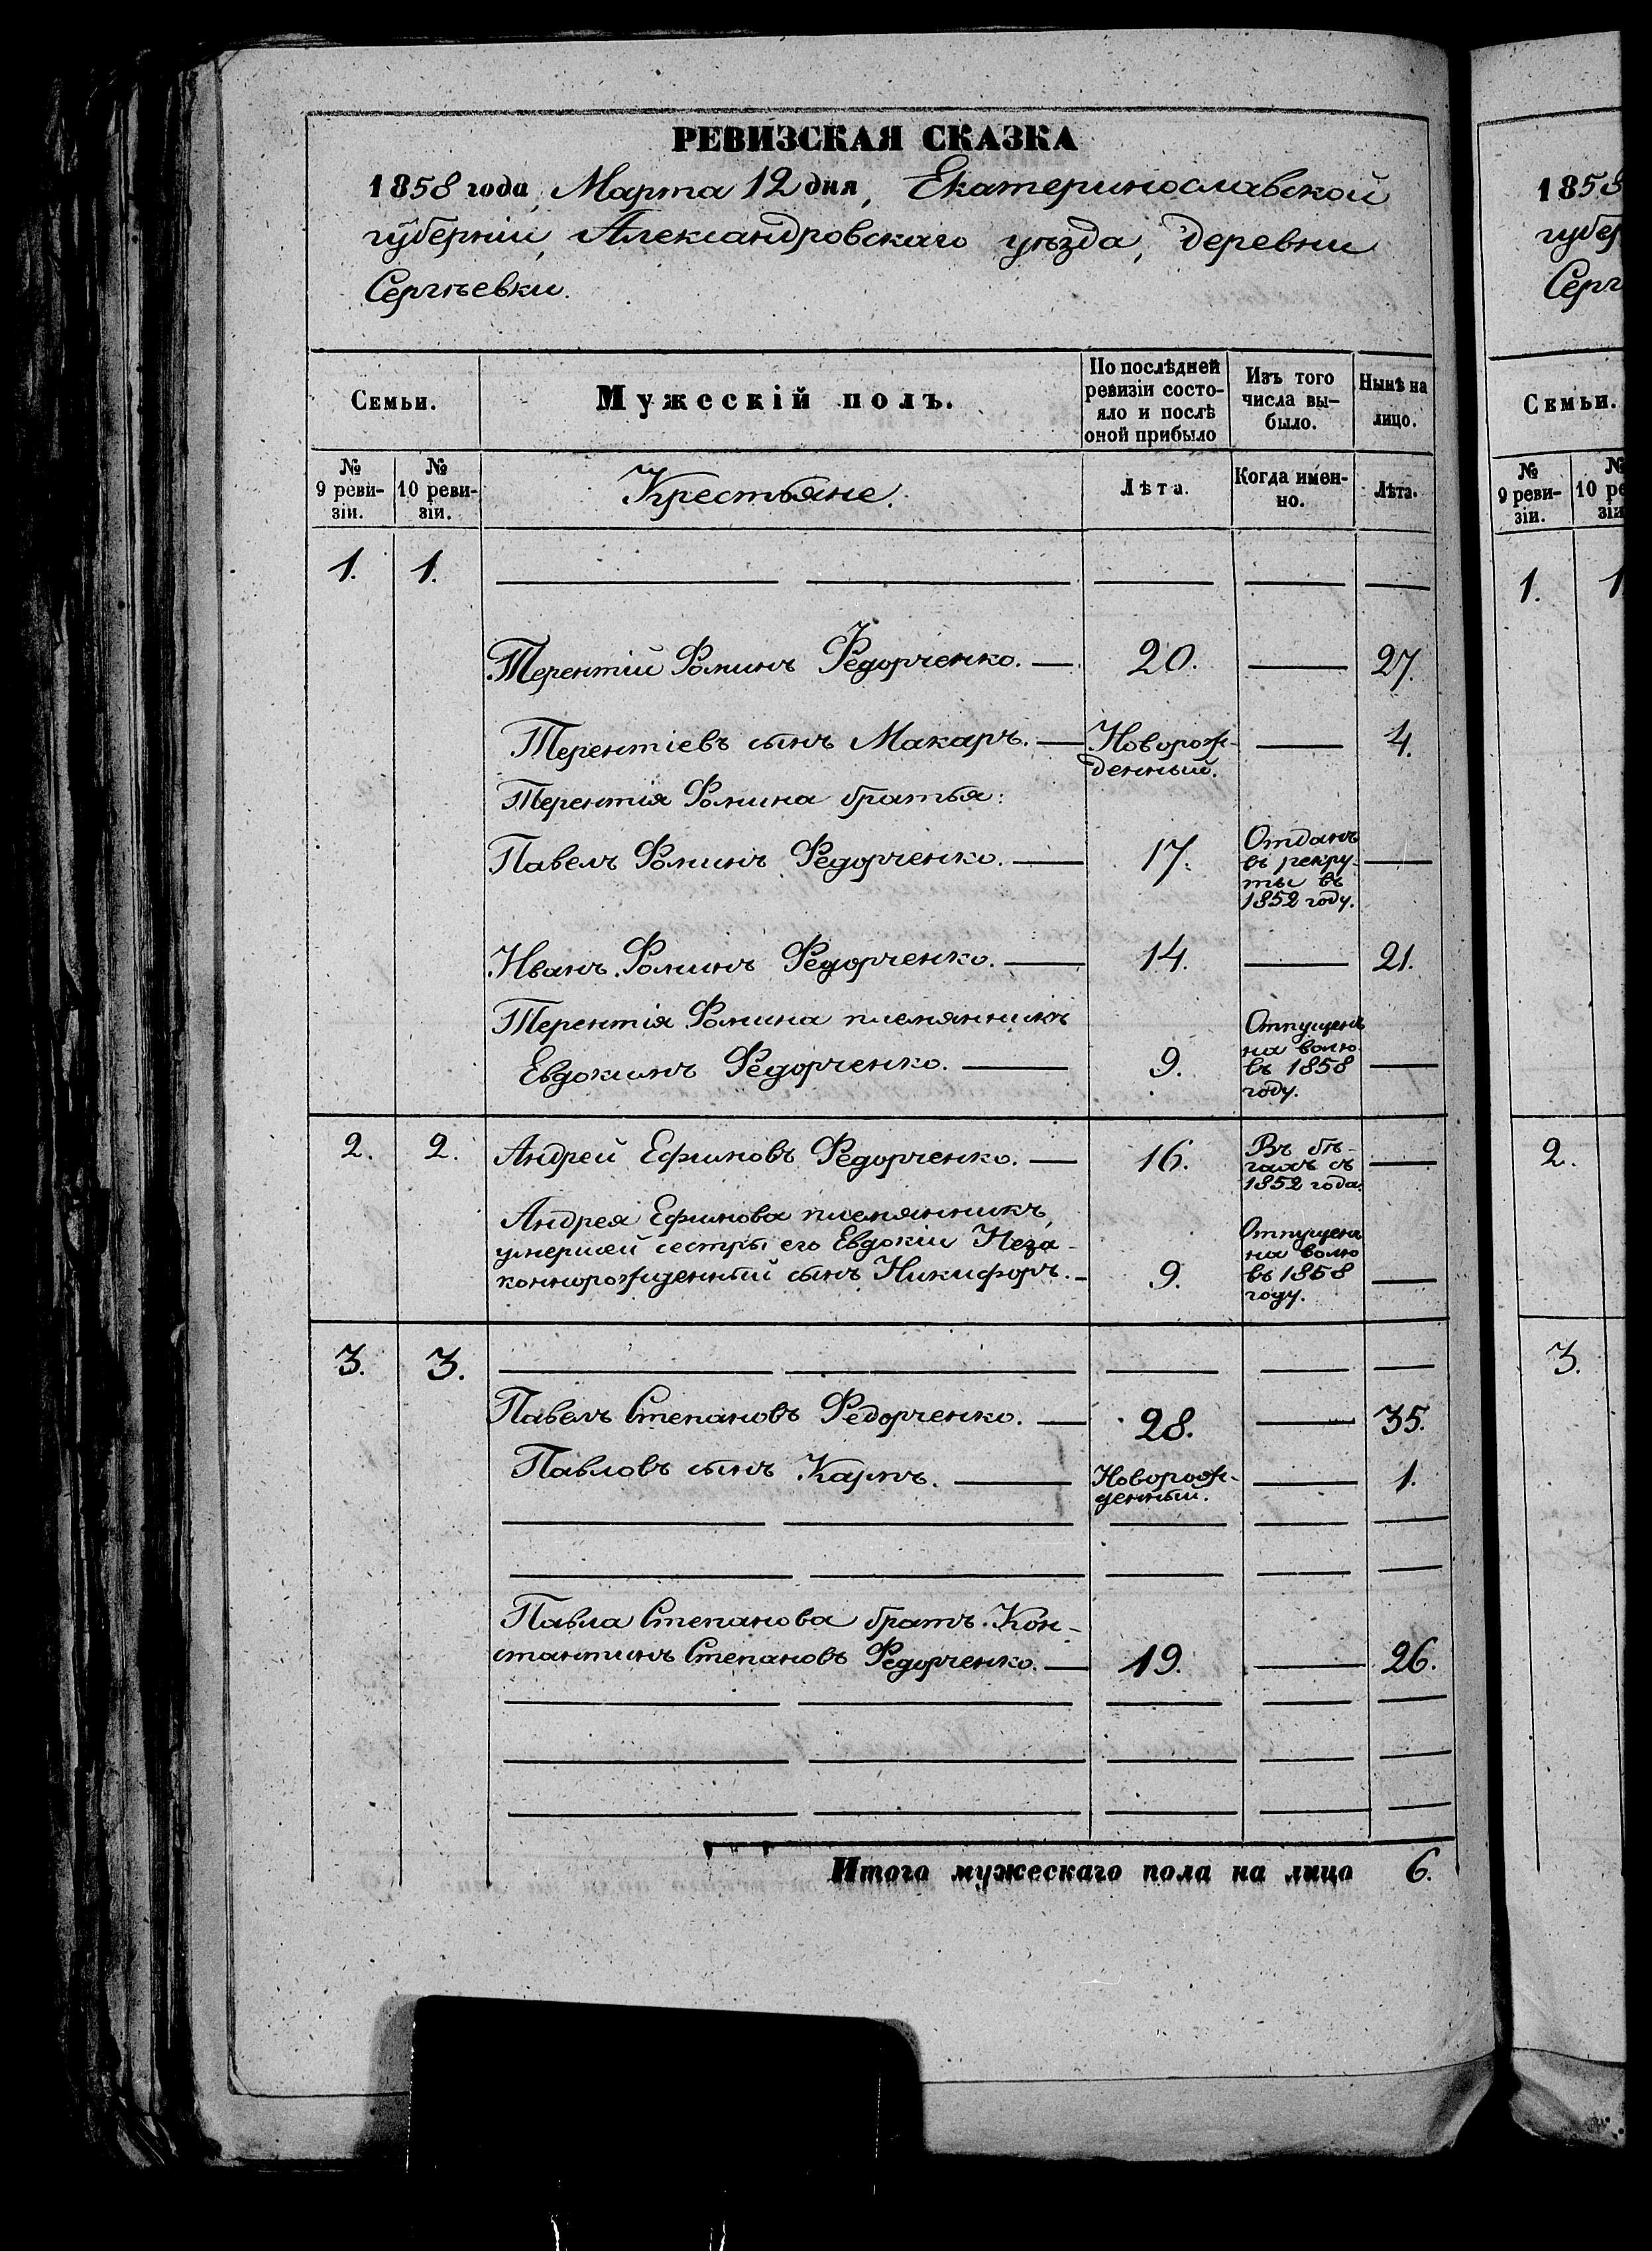 РЕВИЗСКАЯ СКАЗКА
1858 года, Марта 12 дня, Екатеринославской
губерніи, Александровскаго уѣзда, деревни
Сергѣевки.
Семьи.
Мужескій полъ.
По послѣдней
ревизіи состо-
яло и послѣ
оной прибыло
Изъ того
числа вы-
было.
Нынѣ на
лицо.
№
9 реви-
зіи.
№
10 реви-
зіи.
Крестьяне.
Лѣта.
Когда имен-
но.
Лѣта.
1. 1.
Терентій Фоминъ Федорченко. — 20. — 27.
Терентіевъ сынъ Макаръ. — Новорож-
денный. — 4.
Терентія Фомина братья:
Павелъ Фоминъ Федорченко. — 17.
Отданъ
въ рекру
ты въ
1852 году. —
Иванъ Фоминъ Федорченко. — 14. — 21.
Терентія Фомина племянникъ
Евдокимъ Федорченко. — 9.
Отпущенъ
на волю
въ 1858
году. —
2. 2. Андрей Ефимовъ Федорченко. — 16.
Въ бѣ-
гахъ съ
1852 года. —
Андрея Ефимова племянникъ,
умершей сестры его Евдокіи Неза-
коннорожденный сынъ Никифоръ. — 9.
Отпущенъ
на волю
въ 1858
году. —
3. 3.
Павелъ Степановъ Федорченко. — 28. — 35.
Павловъ сынъ Карпъ. — Новорож-
денный. — 1.
Павла Степанова братъ Кон-
стантинъ Степановъ Федорченко. — 19. — 26.
Итого мужескаго пола на лицо 6.
1858
губер
Серг
Семьи.
№
9 реви-
зіи.
№
10 ре
зіи
1. 1
2.
3.